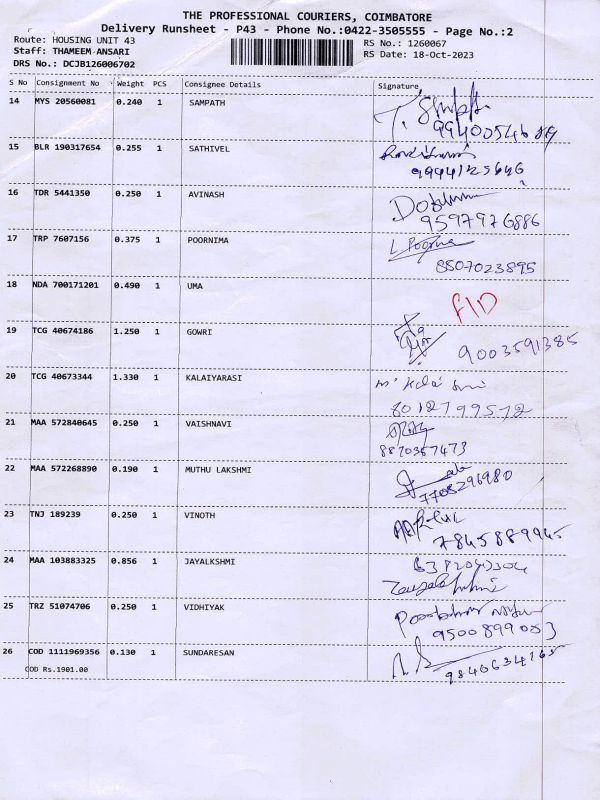 THE PROFESSIONAL COURIERS, COIMBATORE
Delivery Runsheet - P43 - Phone No.:0422-3505555 - Page No.:2
Route: HOUSING UNIT 43 RS No.: 1260067
Staff: THAMEEM ANSARI RS Date: 18-Oct-2023
DRS No.: DCJB126006702
S No Consignment No Weight PCS Consignee Details Signature
14 MYS 20560081 0.240 1 SAMPATH
15 BLR 190317654 0.255 1 SATHIVEL
9994125646
16 TDR 5441350 0.250 1 AVINASH
9597976886
17 TRP 7607156 0.375 1 POORNIMA L Poorna
8507023895
18 NDA 700171201 0.490 1 UMA
19 TCG 40674186 1.250 1 GOWRI
9003591385
20 TCG 40673344 1.330 1 KALAIYARASI
8012799572
21 MAA 572840645 0.250 1 VAISHNAVI
8870357473
22 MAA 572268890 0.190 1 MUTHU LAKSHMI
7708296980
23 TNJ 189239 0.250 1 VINOTH
7845889945
24 MAA 103883325 0.856 1 JAYALKSHMI
25 TRZ 51074706 0.250 1 VIDHIYAK
9500899053
26 COD 1111969356 0.130 1 SUNDARESAN
COD Rs.1901.00 9840634165